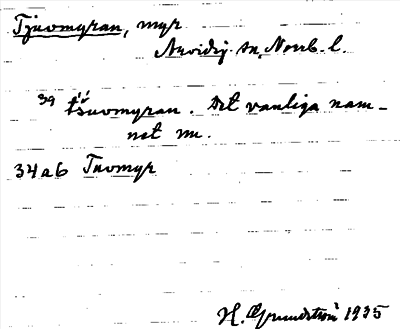 Tjuvmyran, myr
Arvidsj. sn, Norrb. l.
39 tsuvmyran. Det vanliga nam-
net nu.
34a6 Tuvmyr
H. Grundström 1935